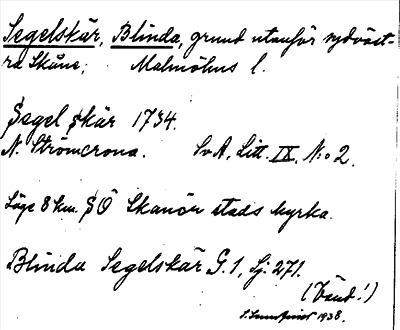 Segelskär, Blinda, grund utanför sydväst-
ra Skåne; Malmöhus l.
Segel skär 1734.
N. Strömcrona. SvA, Litt. IX, N:o 2.
Läge 8 km. SÖ Skanör stads kyrka.
Blinda Segelskär G. 1, Sj. 271.
(Vänd!)
1938.